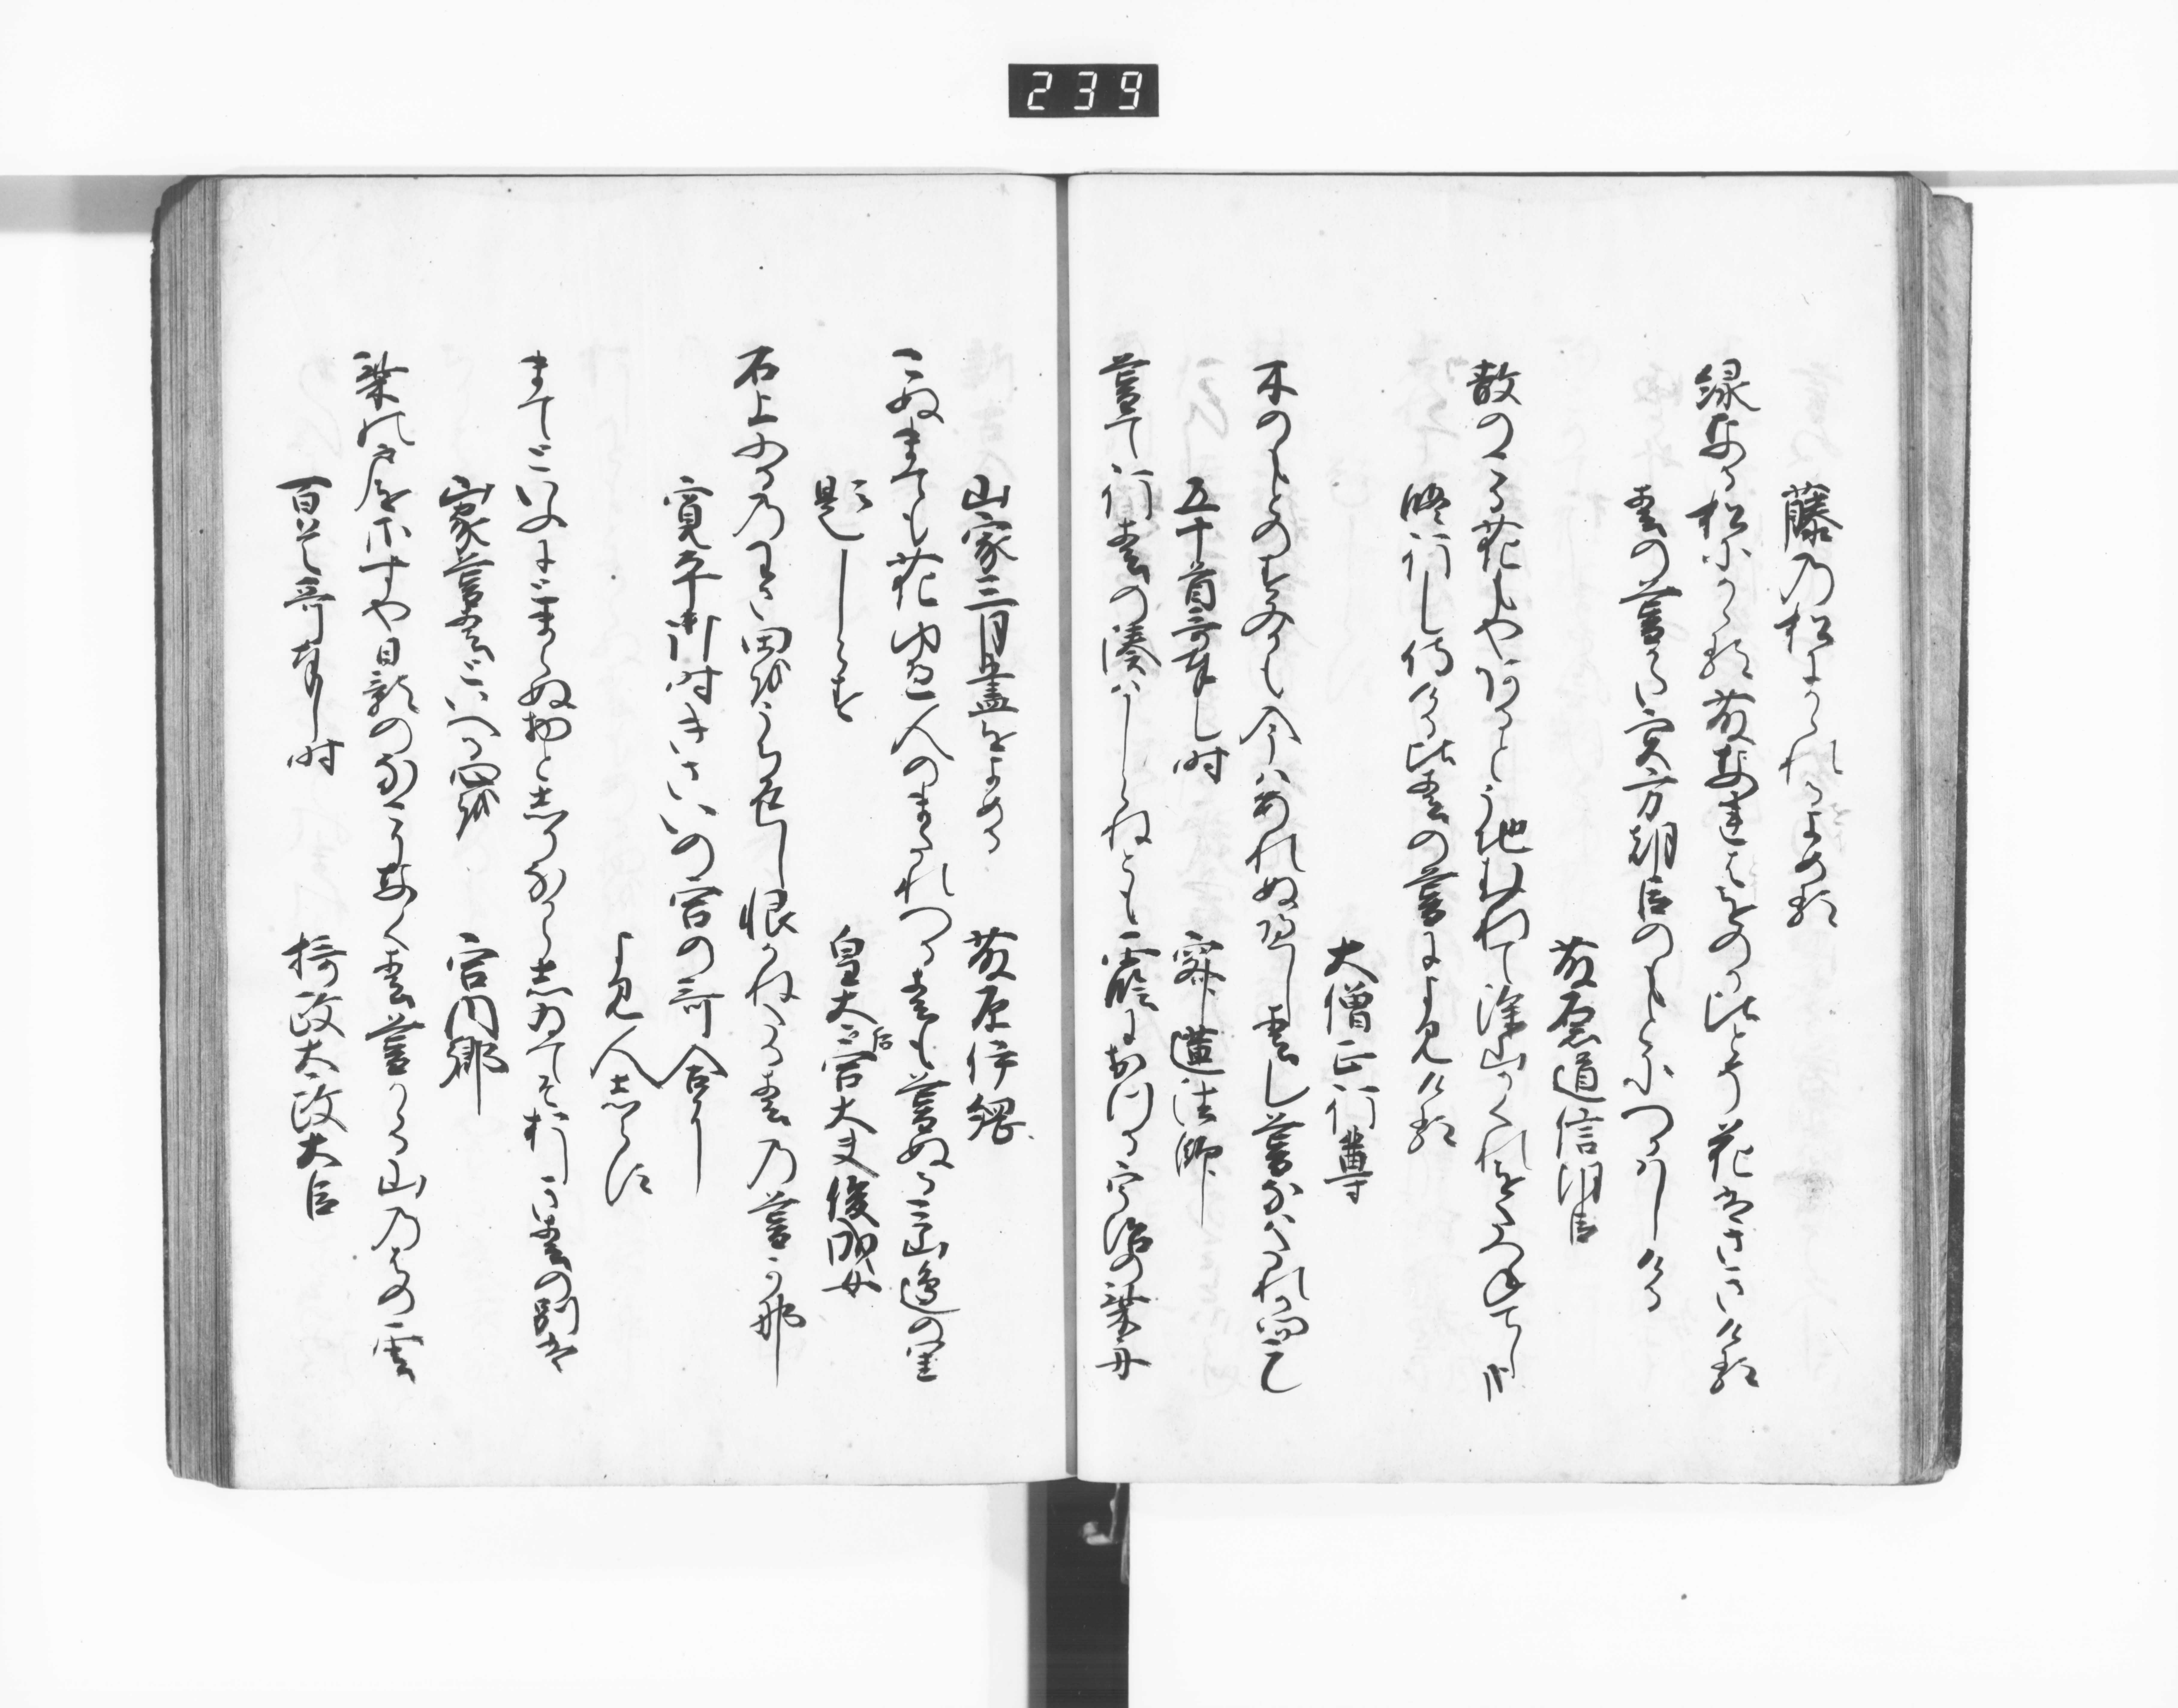 239
藤乃松にかゝれるよめる
緑なる松にかゝれる藤なれとをのか比とそ花はさきける
春の暮かた実方朝臣のもとにつかはしける
藤原道信朝臣
散のこる花もやあるとうちむれて深山かくれを尋てしかな
修行し侍ける比春の暮によみける
大僧正行尊
木のもとのすみかも今はあれぬへし春し暮なはたれか問こん
五十首哥奉し時
寂蓮法師
暮て行春の湊はしらねとも霞におつる宇治の柴舟
山家三月盡をよめる
藤原伊綱
こぬまても花ゆへ人のまたれつる春も暮ぬるみ山邊の里
題しらす
皇太后宮大夫俊成女
石上ふるのわさ田をうち返し恨かねたる春乃暮かな
寛平御時きさいの宮の哥合に
よみ人しらす
まてといふにとまらぬ物としりなからしゐてそおしき春の別は
山家暮春といへる心を
宮内卿
柴の戸をさすや日影のなこりなく春暮かゝる山乃はの雲
百首哥奉し時
摂政太政大臣